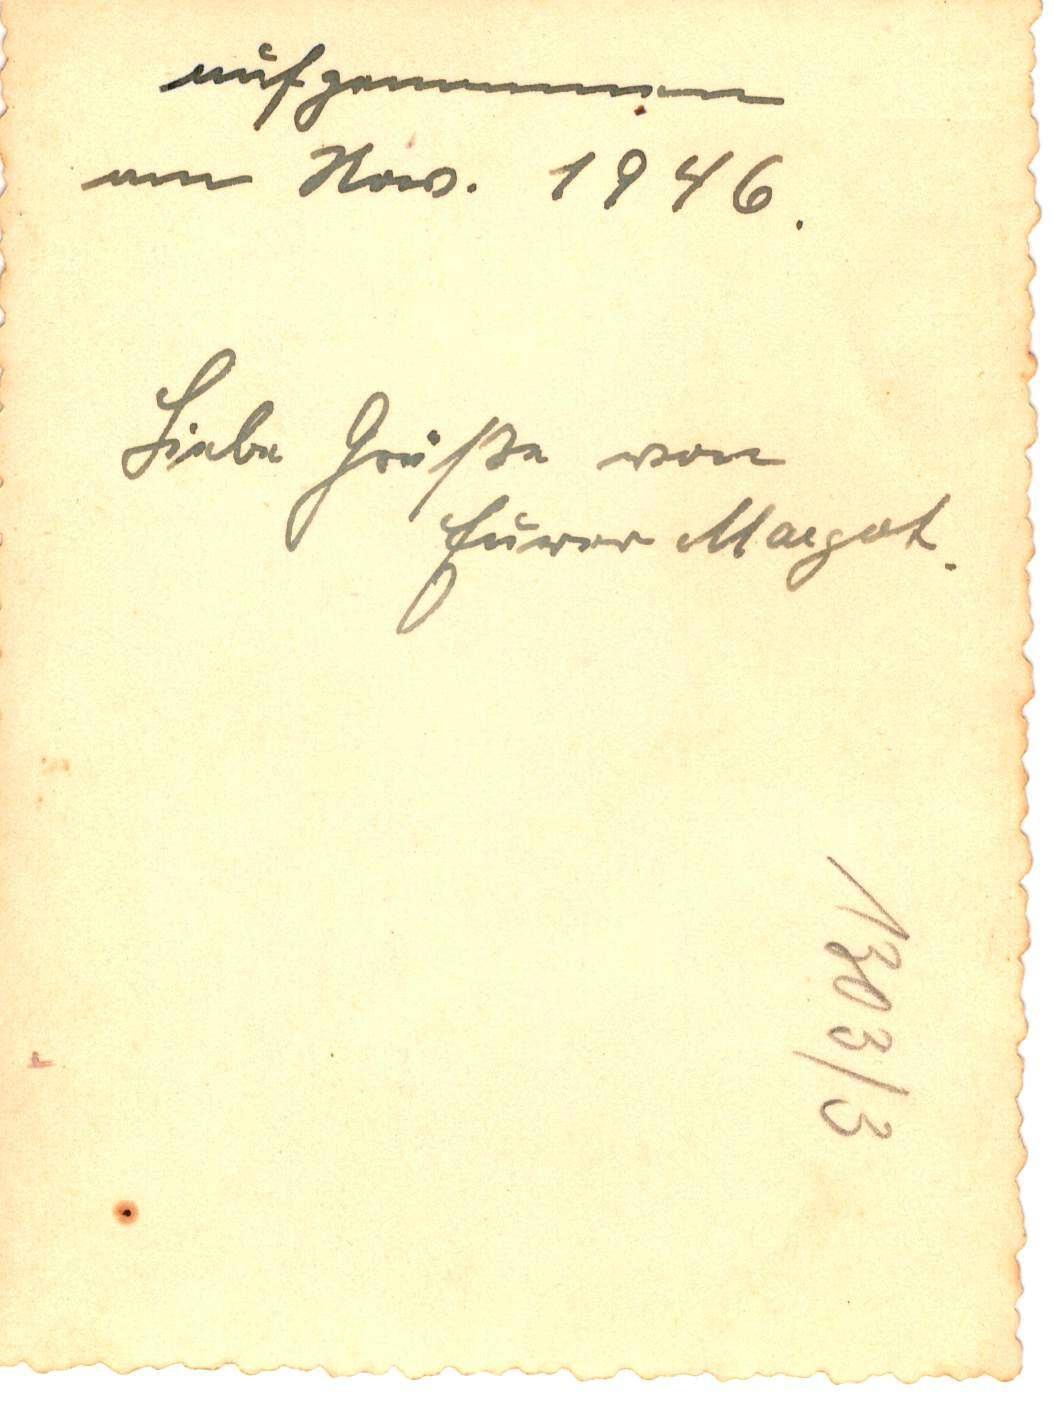 aufgenommen
am Nov. 1946.
Liebe Grüße von
Eurer Margot.
1303/3